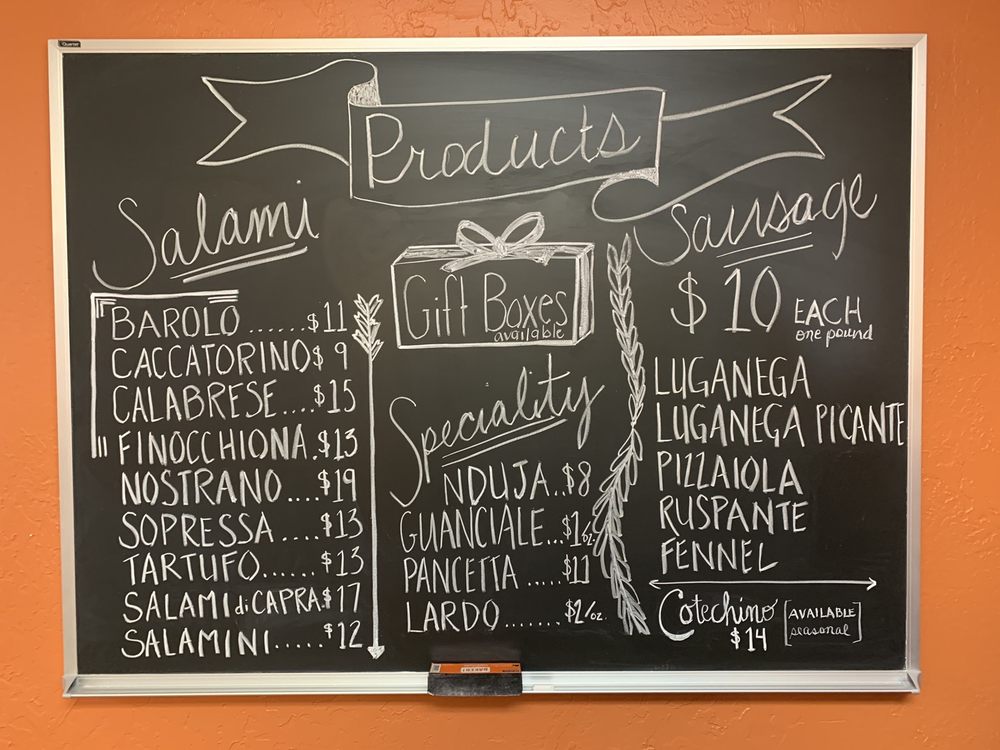 Quartet
Products
Salami
BAROLO......$11
CACCATORINO$ 9
CALABRESE....$15
FINOCCHIONA.$13
NOSTRANO....$19
SOPRESSA....$13
TARTUFO......$13
SALAMI di CAPRA.$17
SALAMINI.....$12
Gift Boxes
available
Speciality
NDUJA..$8
GUANCIALE...$1/oz.
PANCETTA.....$11
LARDO.......$2/oz.
Sausage
$10 EACH
one pound
LUGANEGA
LUGANEGA PICANTE
PIZZAIOLA
RUSPANTE
FENNEL
Cotechino
$14
[AVAILABLE
seasonal]